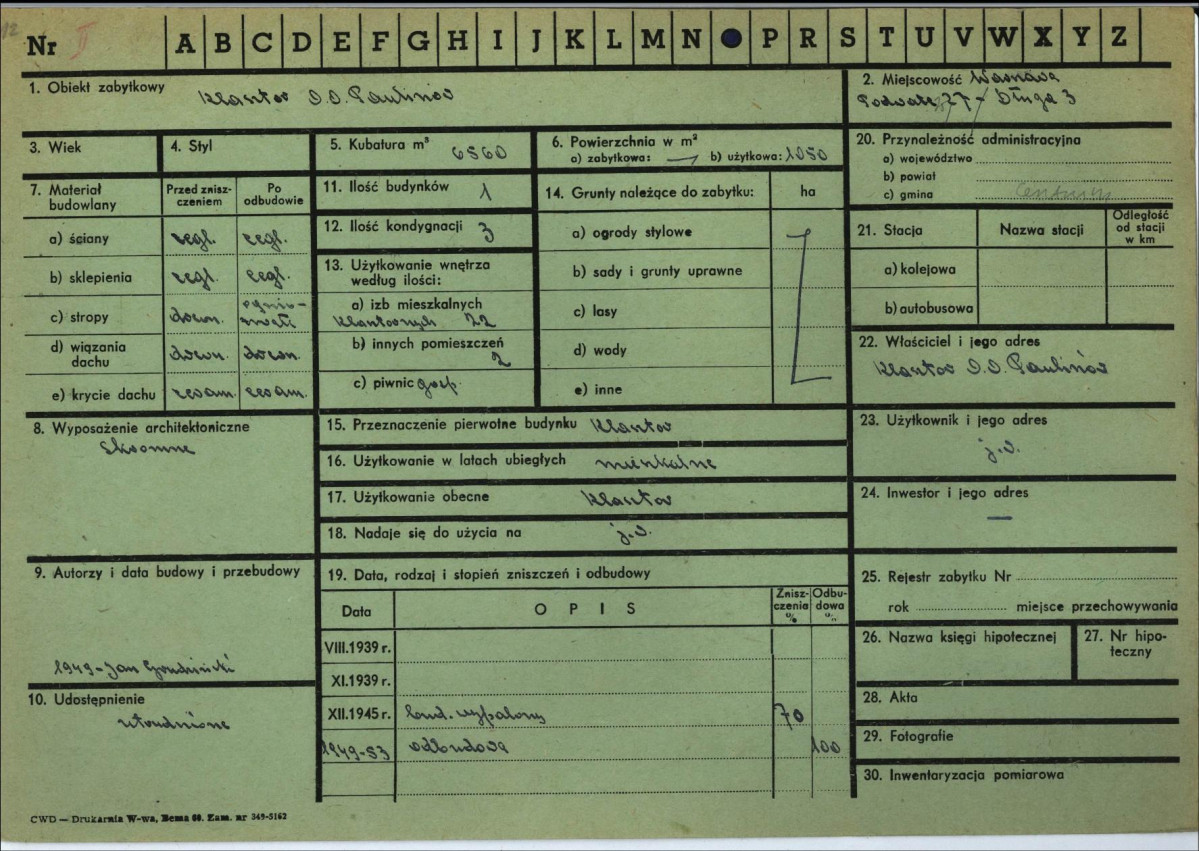 12
Nr II A B C D E F G H I J K L M N P R S T U V W X Y Z
1. Obiekt zabytkowy Klasztor O.O. Paulinów
2. Miejscowość Warszawa
Podwale 27 - Długa 3
3. Wiek
4. Styl
5. Kubatura m³ 6560
6. Powierzchnia w m²
a) zabytkowa: — b) użytkowa: 1050
7. Materiał budowlany
Przed zniszczeniem
Po odbudowie
a) ściany cegl. cegl.
b) sklepienia cegl. cegl.
c) stropy drewn. ognio-
trwałe
d) wiązania dachu drewn. drewn.
e) krycie dachu ceram. ceram.
8. Wyposażenie architektoniczne
Skromne
9. Autorzy i data budowy i przebudowy
1949 - Jan Grudziński
10. Udostępnienie
utrudnione
11. Ilość budynków 1
12. Ilość kondygnacji 3
13. Użytkowanie wnętrza
według ilości:
a) izb mieszkalnych
klasztornych 22
b) innych pomieszczeń
2
c) piwnic gosp.
14. Grunty należące do zabytku: ha
a) ogrody stylowe
b) sady i grunty uprawne
c) lasy
d) wody
e) inne
15. Przeznaczenie pierwotne budynku Klasztor
16. Użytkowanie w latach ubiegłych mieszkalne
17. Użytkowanie obecne Klasztor
18. Nadaje się do użycia na j.w.
19. Data, rodzaj i stopień zniszczeń i odbudowy
Data OPIS Zniszczenia % Odbudowa %
VIII.1939 r.
XI.1939 r.
XII.1945 r. bud. wypalony 70
1949-53 odbudowa 100
20. Przynależność administracyjna
a) województwo
b) powiat
c) gmina Centrum
21. Stacja Nazwa stacji Odległość od stacji w km
a) kolejowa
b) autobusowa
22. Właściciel i jego adres
Klasztor O.O. Paulinów
23. Użytkownik i jego adres
j.w.
24. Inwestor i jego adres
—
25. Rejestr zabytku Nr
rok miejsce przechowywania
26. Nazwa księgi hipotecznej
27. Nr hipo-
teczny
28. Akta
29. Fotografie
30. Inwentaryzacja pomiarowa
CWD — Drukarnia W-wa, Bema 60. Zam. nr 349-5162